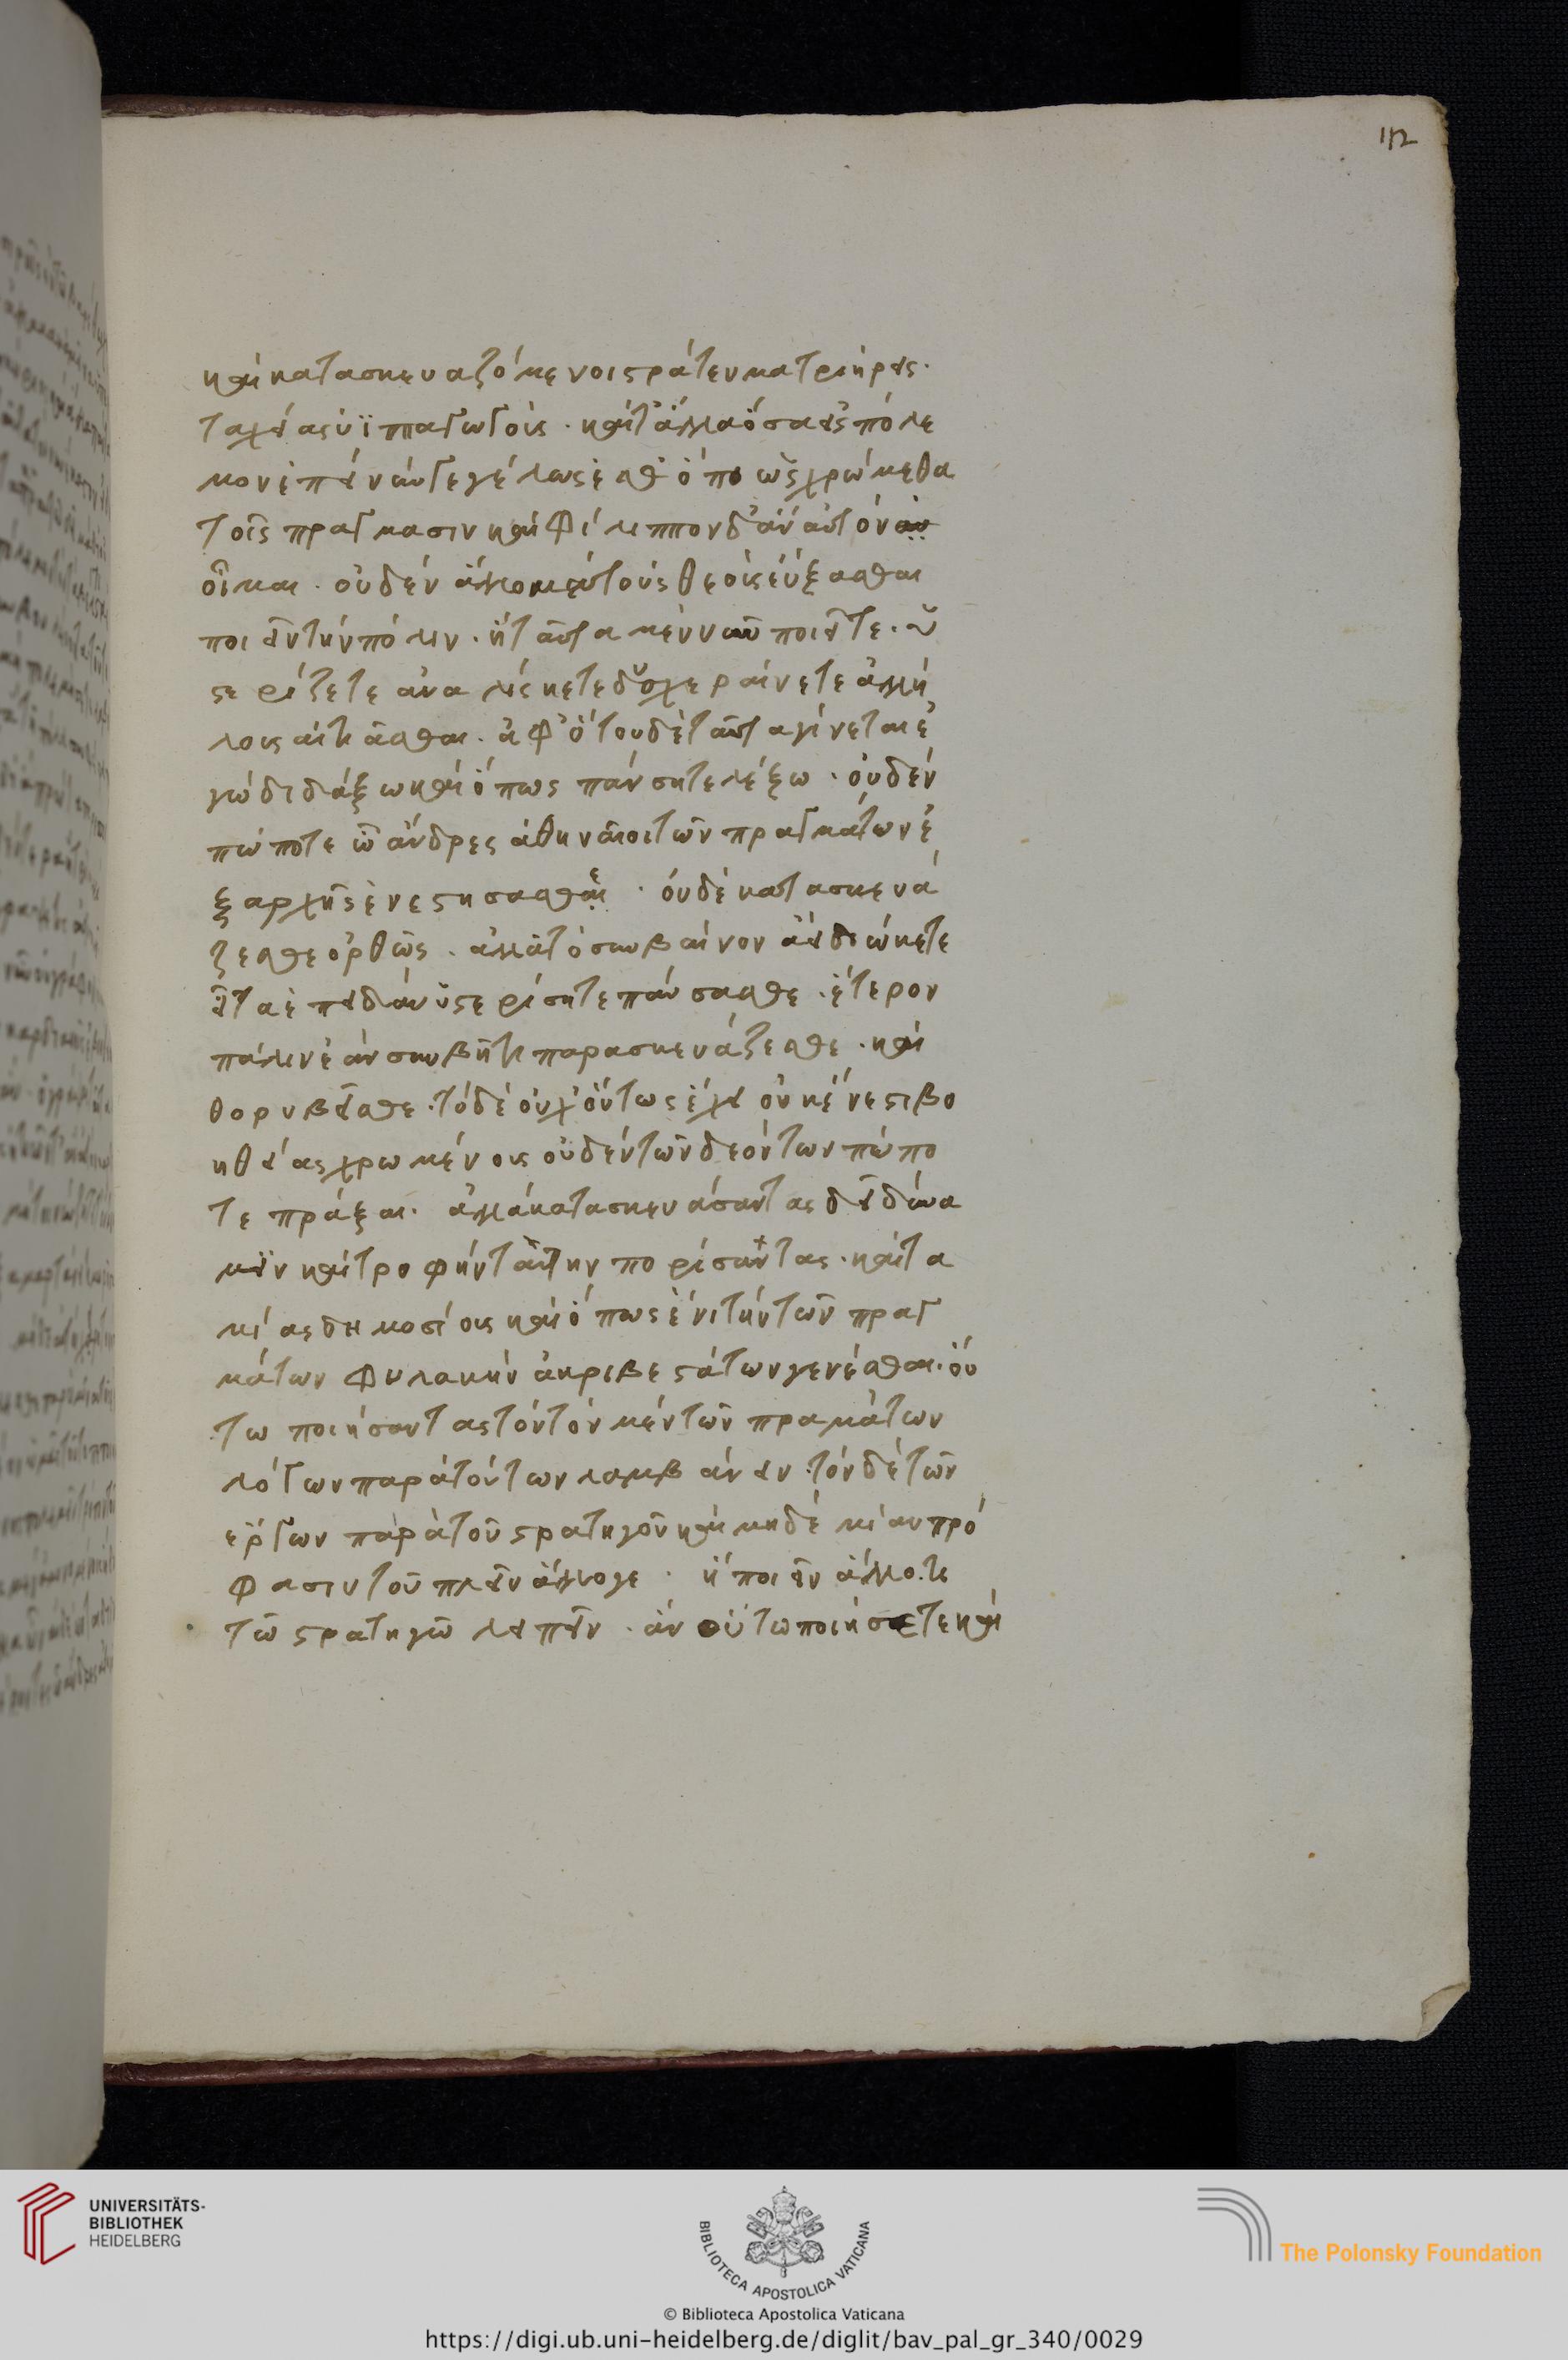 καὶ κατασκευαζόμενοι στράτευμα τριήρεις·
ταχείας ὑϊππαγωγοὺς · καὶ τἄλλα ὅσα εἰς πόλε
μον ἐπεὶ νῦν γε γέλως ἔσθ' ὅπο ὡς χρώμεθα
τοῖς πράγμασιν καὶ Φίλιππον δ' ἂν αὐτὸν αυ
οἶμαι · οὐδὲν ἄλλο μὲν τοὺς θεοὺς εὔξασθαι
ποιεῖν τὴν πόλιν · ἢ ταῦτα μὲν νῦν ποιεῖτε · ὑ
στερίζετε ἀναλίσκετε δυσχεραίνετε ἀλλή
λοις αἰτιᾶσθαι · ἀφ' ὅτου δὲ ταῦτα γίνεται ἐ
γὼ διδάξω καὶ ὅπως παύσητε λέξω · οὐδὲν
πώποτε ὦ ἄνδρες ἀθηναῖοι τῶν πραγμάτων ἐ
ξ ἀρχῆς ἐνεστήσασθαι · οὐδὲ κατασκευά
ζεσθε ὀρθῶς · ἀλλὰ τὸ συμβαῖνον ἀεὶ διώκετε
εἶτα ἐπειδὰν ὑστερίσητε παύσασθε · ἕτερον
πάλιν ἐὰν συμβῆ τι παρασκευάζεσθε · καὶ
θορυβεῖσθε · τὸ δὲ οὐχ' οὕτως ἔχει οὐκ ἔνεστι βο
ηθείας χρωμένοις οὐδὲν τῶν δεόντων πώπο
τε πράξαι · ἀλλὰ κατασκευάσαντας δεῖ δύνα
μειν καὶ τροφὴν ταύτην πορίσαντας · καὶ τα
μίας δημοσίοις καὶ ὅπως ἔνι τὴν τῶν πραγ
μάτων φυλακὴν ἀκριβεστάτων γενέσθαι · οὕ
τω ποιήσαντας τὸν τὸν μὲν τῶν πραμάτων
λόγων παρὰ τούτων λαμβάνειν · τὸν δὲ τῶν
ἔργων παρὰ τοῦ στρατηγοῦ καὶ μηδὲ μίαν πρό
φασιν τοῦ πλεῖν ἄλλοχε · ἢ ποιεῖν ἄλλο τι
τῶ στρατηγῶ λειπεῖν · ἂν οὕτω ποιήσετε καὶ
112
UNIVERSITÄTS-
BIBLIOTHEK
HEIDELBERG
BIBLIOTECA APOSTOLICA VATICANA
The Polonsky Foundation
© Biblioteca Apostolica Vaticana
https://digi.ub.uni-heidelberg.de/diglit/bav_pal_gr_340/0029